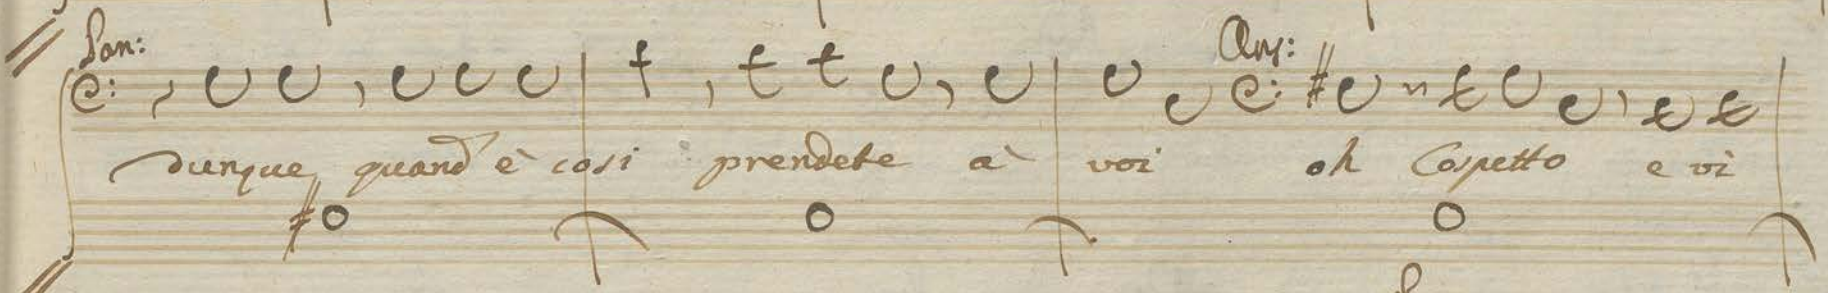 Pan: Ans:
Dunque quand' è cosi prendete à voi oh Cospetto e vi